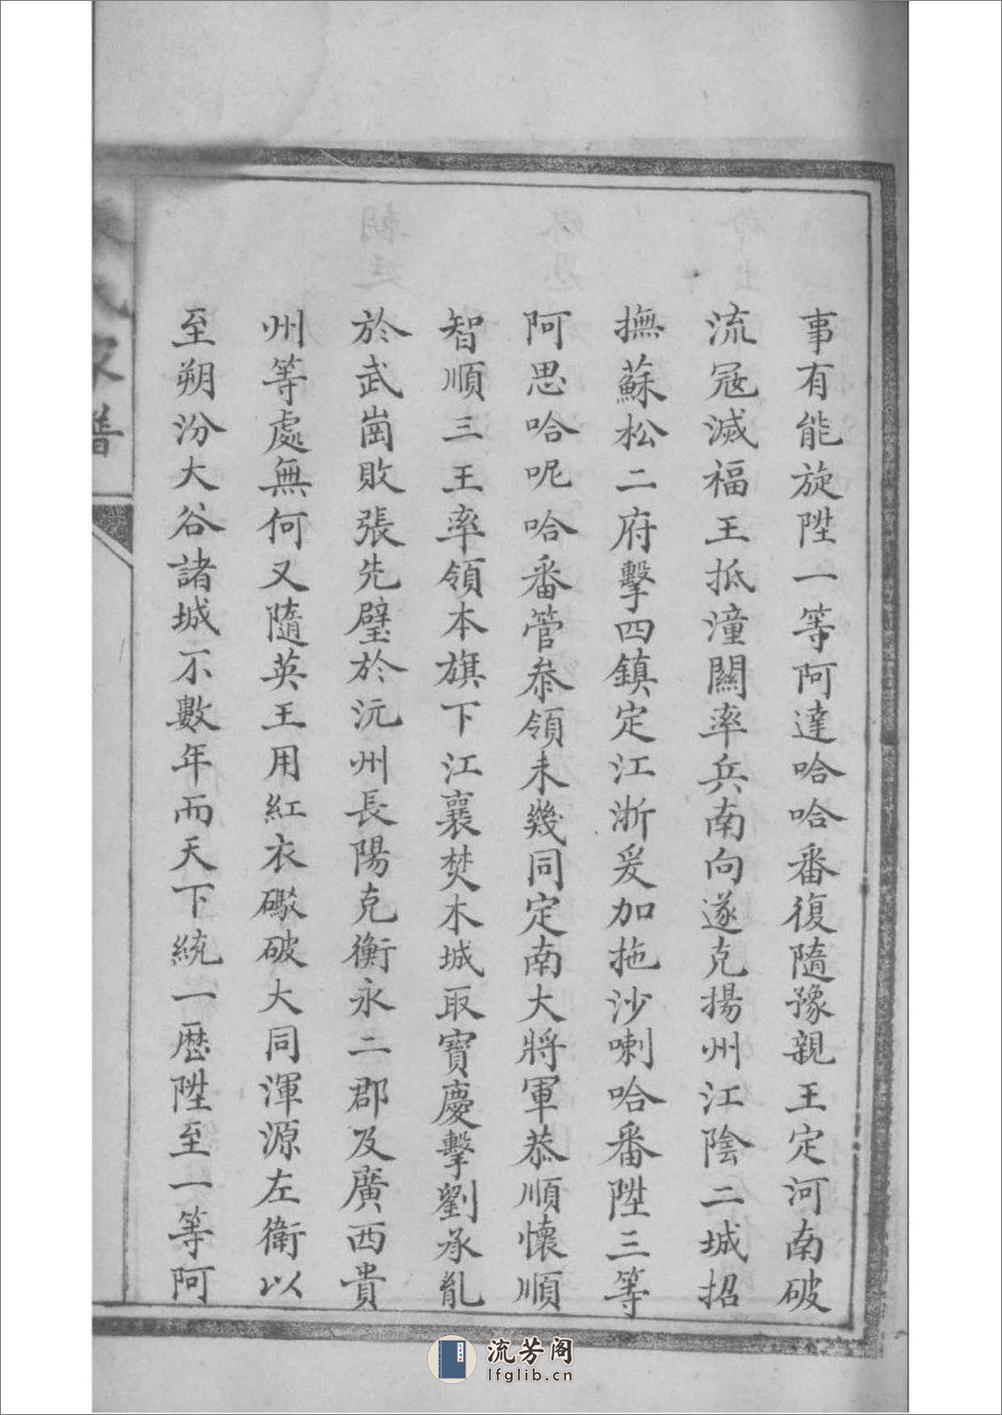 事有能旋陞一等阿達哈哈番復隨豫親王定河南破
流冦滅福王抵潼關率兵南向遂克揚州江陰二城招
撫蘇松二府擊四鎮定江浙爰加拖沙喇哈番陞三等
阿思哈呢哈番管叅領未幾同定南大將軍恭順懷順
智順三王率領本旗下江襄焚木城取寶慶擊劉承亂
於武崗敗張先璧於沅州長陽克衡永二郡及廣西貴
州等處無何又隨英王用紅衣礮破大同渾源左衛以
至朔汾大谷諸城不數年而天下統一歷陞至一等阿
氏家譜
流芳阁
lfglib.cn